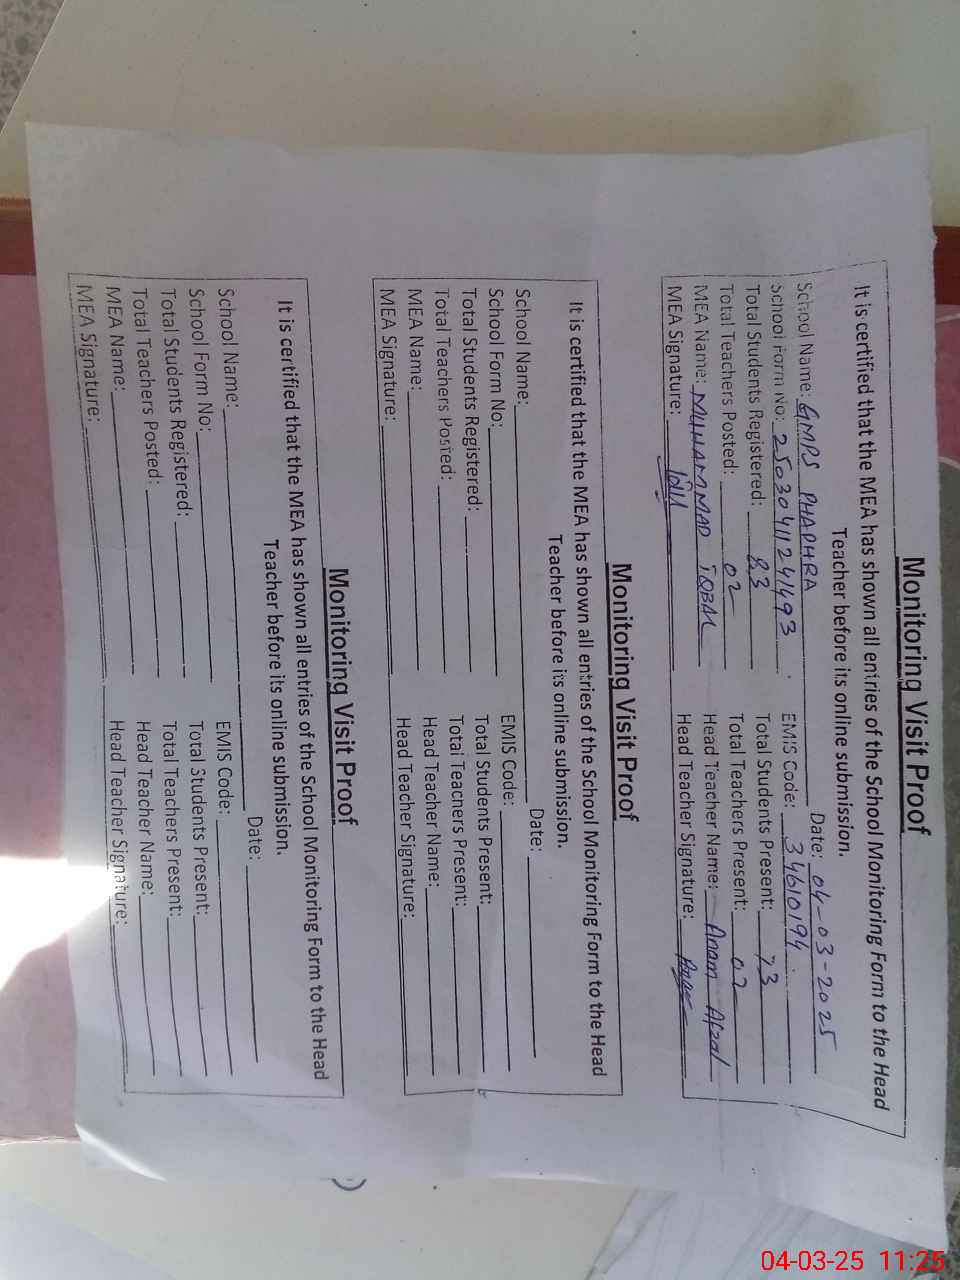 Monitoring Visit Proof
It is certified that the MEA has shown all entries of the School Monitoring Form to the Head
Teacher before its online submission.
School Name: GMPS PHAPHRA Date: 04-03-2025
School Form No: 25030411241493 EMIS Code: 34610194
Total Students Registered: 83 Total Students Present: 73
Total Teachers Posted: 02 Total Teachers Present: 02
MEA Name: MUHAMMAD IQBAL Head Teacher Name: Anam Afzal
MEA Signature: Head Teacher Signature:
Monitoring Visit Proof
It is certified that the MEA has shown all entries of the School Monitoring Form to the Head
Teacher before its online submission.
School Name: Date:
School Form No: EMIS Code:
Total Students Registered: Total Students Present:
Total Teachers Posted: Total Teachers Present:
MEA Name: Head Teacher Name:
MEA Signature: Head Teacher Signature:
Monitoring Visit Proof
It is certified that the MEA has shown all entries of the School Monitoring Form to the Head
Teacher before its online submission.
School Name: Date:
School Form No: EMIS Code:
Total Students Registered: Total Students Present:
Total Teachers Posted: Total Teachers Present:
MEA Name: Head Teacher Name:
MEA Signature: Head Teacher Signature:
04-03-25 11:25